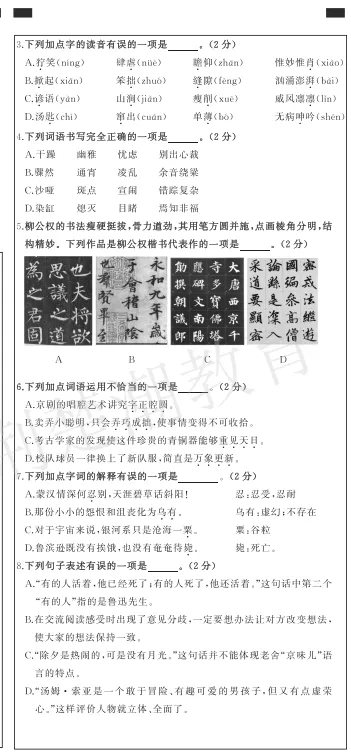 3.下列加点字的读音有误的一项是____。(2分)
A.狞笑(níng) 肆虐(nüè) 瞻仰(zhān) 惟妙惟肖(xiào)
B.掀起(xiān) 笨拙(zhuō) 缝隙(fèng) 汹涌澎湃(bài)
C.谚语(yàn) 山涧(jiàn) 瘦削(xuē) 威风凛凛(lǐn)
D.汤匙(chí) 窜出(cuàn) 单薄(bó) 无病呻吟(shēn)
4.下列词语书写完全正确的一项是____。(2分)
A.干躁 幽稚 忧虑 别出心裁
B.骤然 通宵 凌乱 余音绕梁
C.沙哑 斑点 宣闹 错踪复杂
D.染缸 熄灭 目睹 焉知非福
5.柳公权的书法瘦硬挺拔,骨力遒劲,其用笔方圆并施,点画棱角分明,结
构精妙。下列作品是柳公权楷书代表作的一项是____。(2分)
A B C D
6.下列加点词语运用不恰当的一项是____。(2分)
A.京剧的唱腔艺术讲究字正腔圆。
B.卖弄小聪明,只会弄巧成拙,使事情变得不可收拾。
C.考古学家的发现使这件珍贵的青铜器能够重见天日。
D.校队球员一律换上了新队服,简直是万象更新。
7.下列加点字词的解释有误的一项是____。(2分)
A.蒙汉情深何忍别,天涯碧草话斜阳! 忍:忍受,忍耐
B.那份小小的怨恨和沮丧化为乌有。 乌有:虚幻;不存在
C.对于宇宙来说,银河系只是沧海一粟。 粟:谷粒
D.鲁滨逊既没有挨饿,也没有奄奄待毙。 毙:死亡。
8.下列句子表述有误的一项是____。(2分)
A.“有的人活着,他已经死了;有的人死了,他还活着。”这句话中第二个
“有的人”指的是鲁迅先生。
B.在交流阅读感受时出现了意见分歧,一定要想办法让对方改变想法,
使大家的想法保持一致。
C.“除夕是热闹的,可是没有月光。”这句话并不能体现老舍“京味儿”语
言的特点。
D.“汤姆·索亚是一个敢于冒险、有趣可爱的男孩子,但又有点虚荣
心。”这样评价人物就立体、全面了。